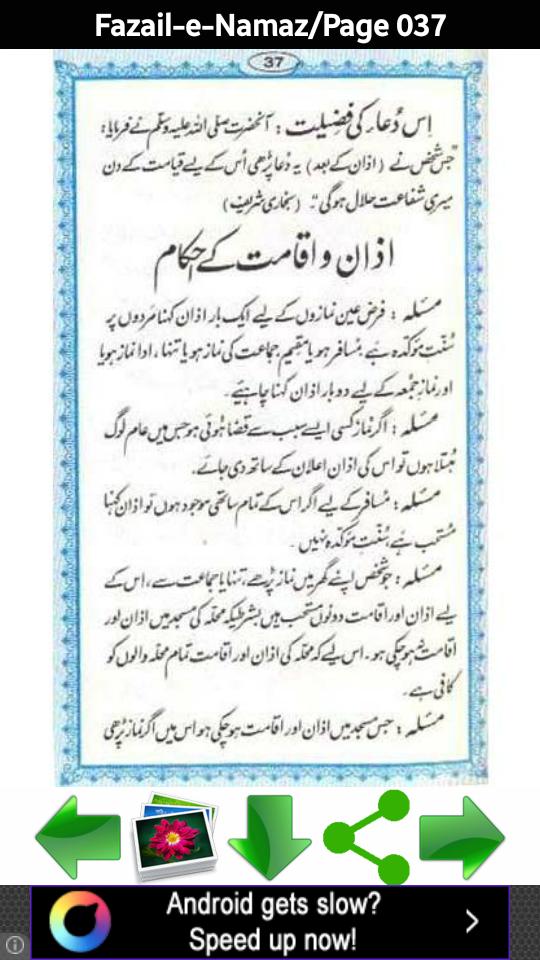 Fazail-e-Namaz/Page 037
37
اِس دُعاء کی فضیلت : آنحضرت صلی اللہ علیہ وسلم نے فرمایا :
"جس شخص نے ( اذان کے بعد ) یہ دُعا پڑھی اُس کے لیے قیامت کے دن
میری شفاعت حلال ہو گی"۔ (بخاری شریف)
اذان و اقامت کے احکام
مسئلہ : فرض عین نمازوں کے لیے ایک بار اذان کہنا مَردوں پر
سُنّتِ مؤکّدہ ہے مُسافر ہو یا مقیم جماعت کی نماز ہو یا تنہا ، ادا نماز ہو یا
اور نمازِ جُمعہ کے لیے دو بار اذان کہنا چاہیئے ۔
مسئلہ : اگر نماز کسی ایسے سبب سے قضا ہوئی ہو جس میں عام لوگ
مُبتلا ہوں تو اس کی اذان اعلان کے ساتھ دی جائے ۔
مسئلہ : مُسافر کے لیے اگر اس کے تمام ساتھی موجود ہوں تو اذان کہنا
مُستحب ہے ، سُنّتِ مؤکّدہ نہیں ۔
مسئلہ : جو شخص اپنے گھر میں نماز پڑھے ، تنہا یا جماعت سے ، اس کے
لیے اذان اور اقامت دونوں مستحب ہیں بشرطیکہ محلّہ کی مسجد میں اذان اور
اقامت ہو چکی ہو ۔ اس لیے کہ محلّہ کی اذان اور اقامت تمام محلہ والوں کو
کافی ہے ۔
مسئلہ : جس مسجد میں اذان اور اقامت ہو چکی ہو اس میں اگر نماز پڑھی
Android gets slow?
Speed up now!